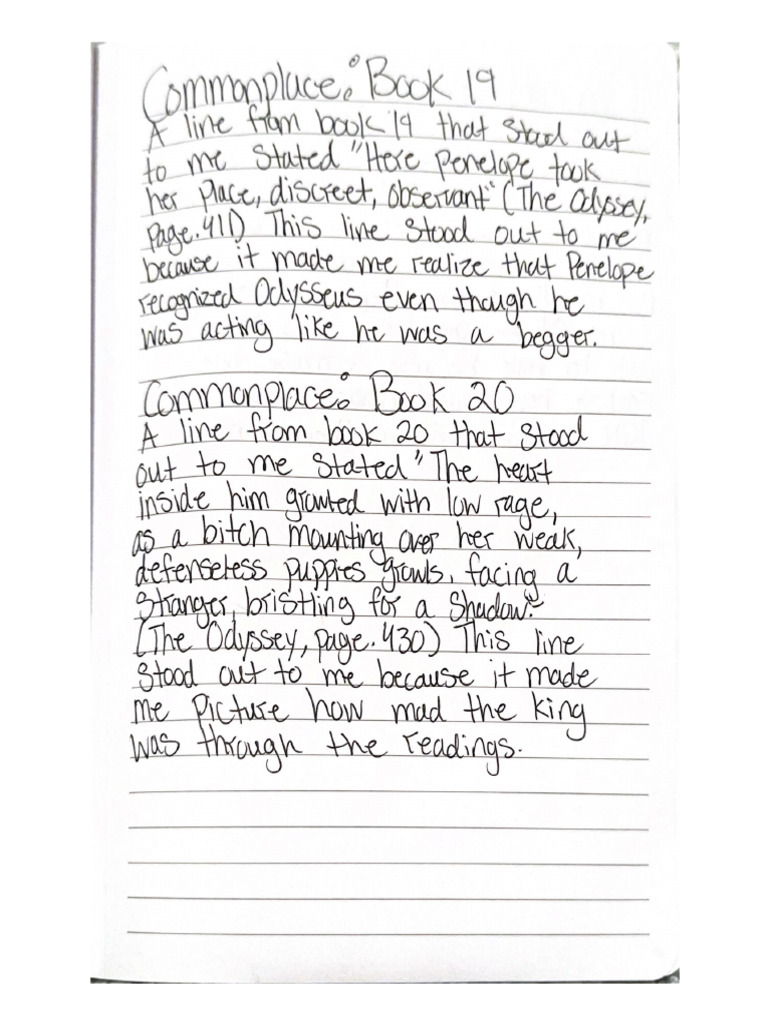 Commonplace: Book 19
A line from book 19 that stood out
to me stated "Here Penelope took
her place, discreet, observant" (The Odyssey,
page.411) This line stood out to me
because it made me realize that Penelope
recognized Odysseus even though he
was acting like he was a begger.
Commonplace: Book 20
A line from book 20 that stood
out to me stated "The heart
inside him growled with low rage,
as a bitch mounting over her weak,
defenseless puppies growls, facing a
stranger, bristling for a shadow."
(The Odyssey, page.430) This line
stood out to me because it made
me picture how mad the king
was through the readings.